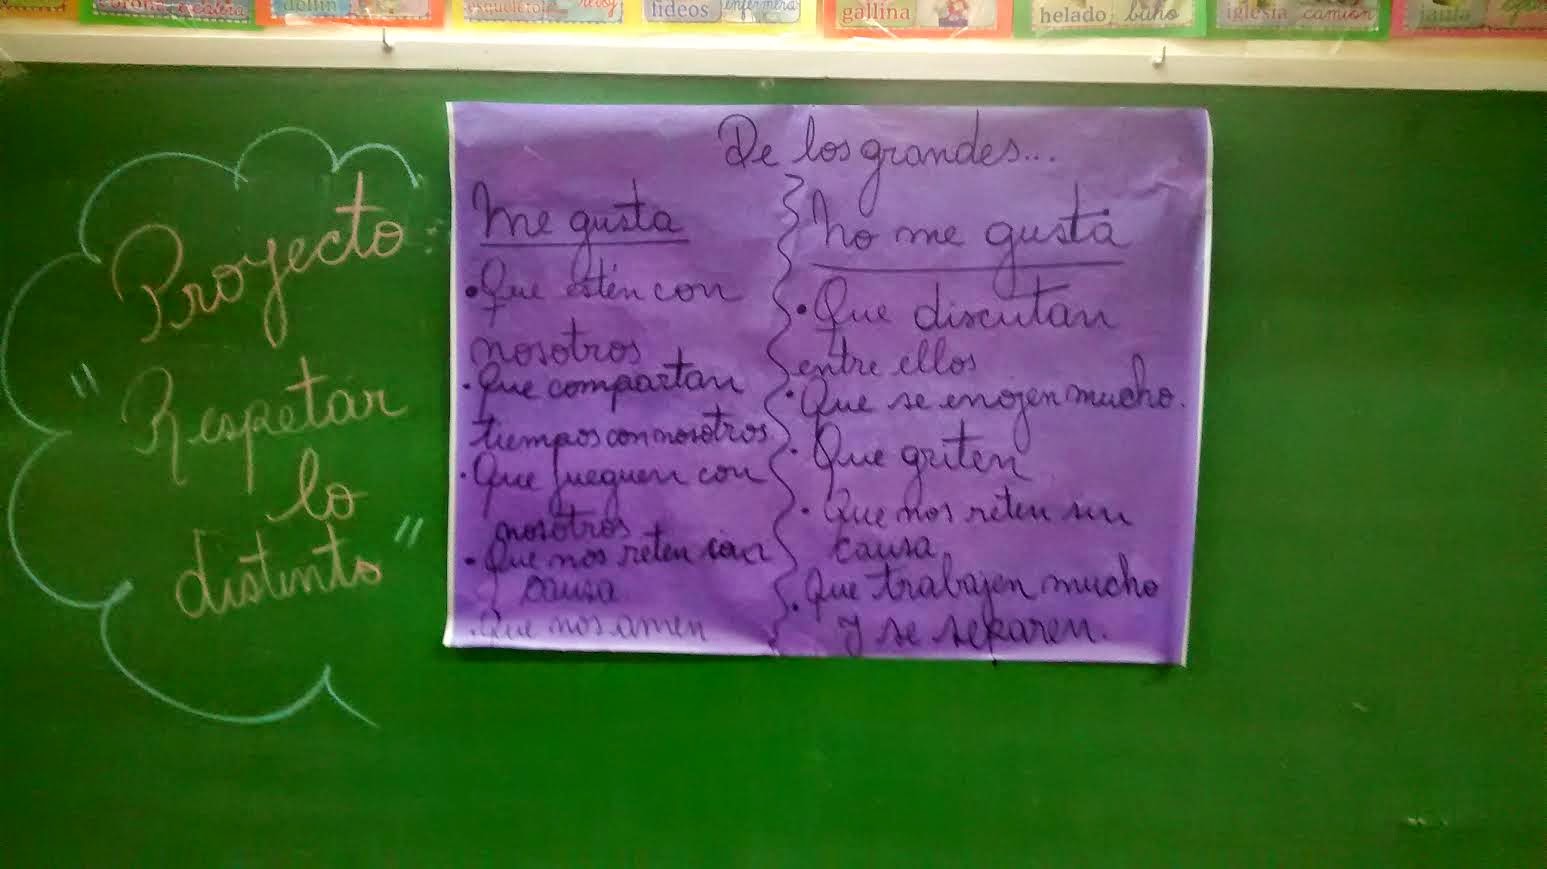 delfín
esqueleto
fideos enfermera
gallina
helado búho
iglesia camión
Proyecto:
"Respetar
lo
distinto"
De los grandes...
Me gusta
• Que estén con
nosotros
• Que compartan
tiempos con nosotros.
• Que jueguen con
nosotros
• Que nos reten con
causa
. Que nos amen
No me gusta
• Que discutan
entre ellos
• Que se enojen mucho.
• Que griten
• Que nos reten sin
causa.
• Que trabajen mucho
y se separen.